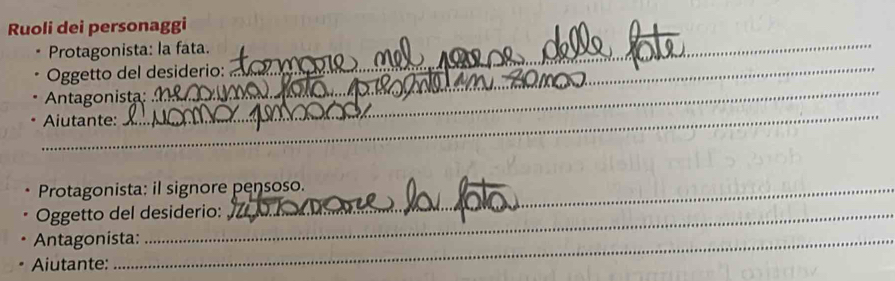 Ruoli dei personaggi
• Protagonista: la fata.
• Oggetto del desiderio: tornare nel paese delle fate
• Antagonista: nessuna fata presente in zona
• Aiutante: l'uomo pensoso
• Protagonista: il signore pensoso.
• Oggetto del desiderio: la fata
• Antagonista:
• Aiutante: